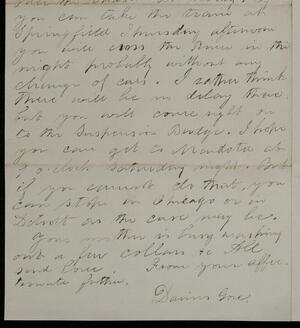 you can take the train at
Springfield Thursday afternoon
you will cross the River in the
night probably without any
change of cars. I rather think
there will be no delay there.
but you will come right on
to the Suspension Bridge. I hope
you can get to Mendota at
9 o'clock Saturday night. But
if you cannot do that, you
can stop in Chicago or in
Detroit as the case may be.
Your mother is busy washing
out a few collars &c All
send love. From your affec
tionate father.
Darius Gore